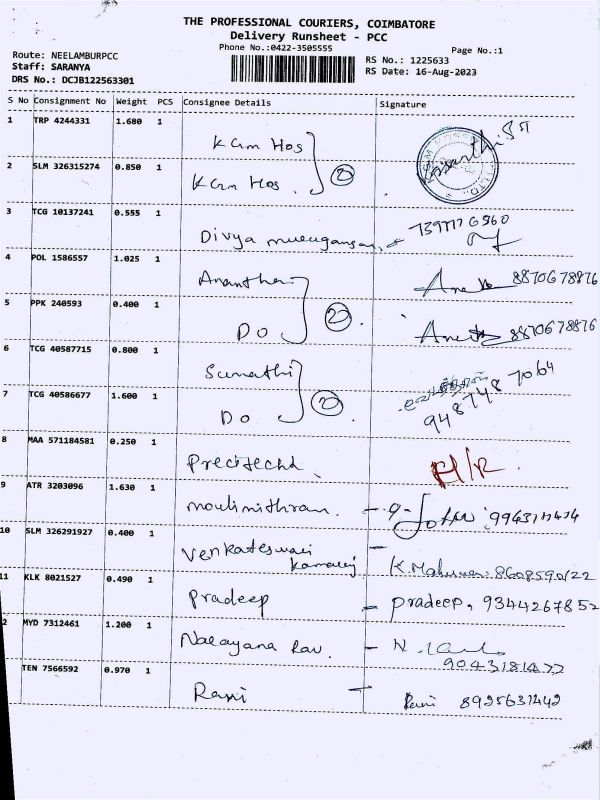 THE PROFESSIONAL COURIERS, COIMBATORE
Delivery Runsheet - PCC
Phone No.:0422-3505555
Page No.:1
Route: NEELAMBURPCC
Staff: SARANYA
DRS No.: DCJB122563301
RS No.: 1225633
RS Date: 16-Aug-2023
S No Consignment No Weight PCS Consignee Details Signature
1 TRP 4244331 1.680 1
KGm Hos
2 SLM 326315274 0.850 1
KGm Hos. 2
3 TCG 10137241 0.555 1
Divya
4 POL 1586557 1.025 1
Ananthi 8870678876
5 PPK 240593 0.400 1
Do 2 8870678876
6 TCG 40587715 0.800 1
Sumathi
948748 7064
7 TCG 40586677 1.600 1
Do 2
8 MAA 571184581 0.250 1
Precitechh
9 ATR 3203096 1.630 1
moulimithran.
10 SLM 326291927 0.400 1
Venkateswari
8608590122
11 KLK 8021527 0.490 1
Pradeep - Pradeep, 9344267852
2 MYD 7312461 1.200 1
Narayana Rav. -
TEN 7566592 0.970 1
Rani - Rani 8925631442